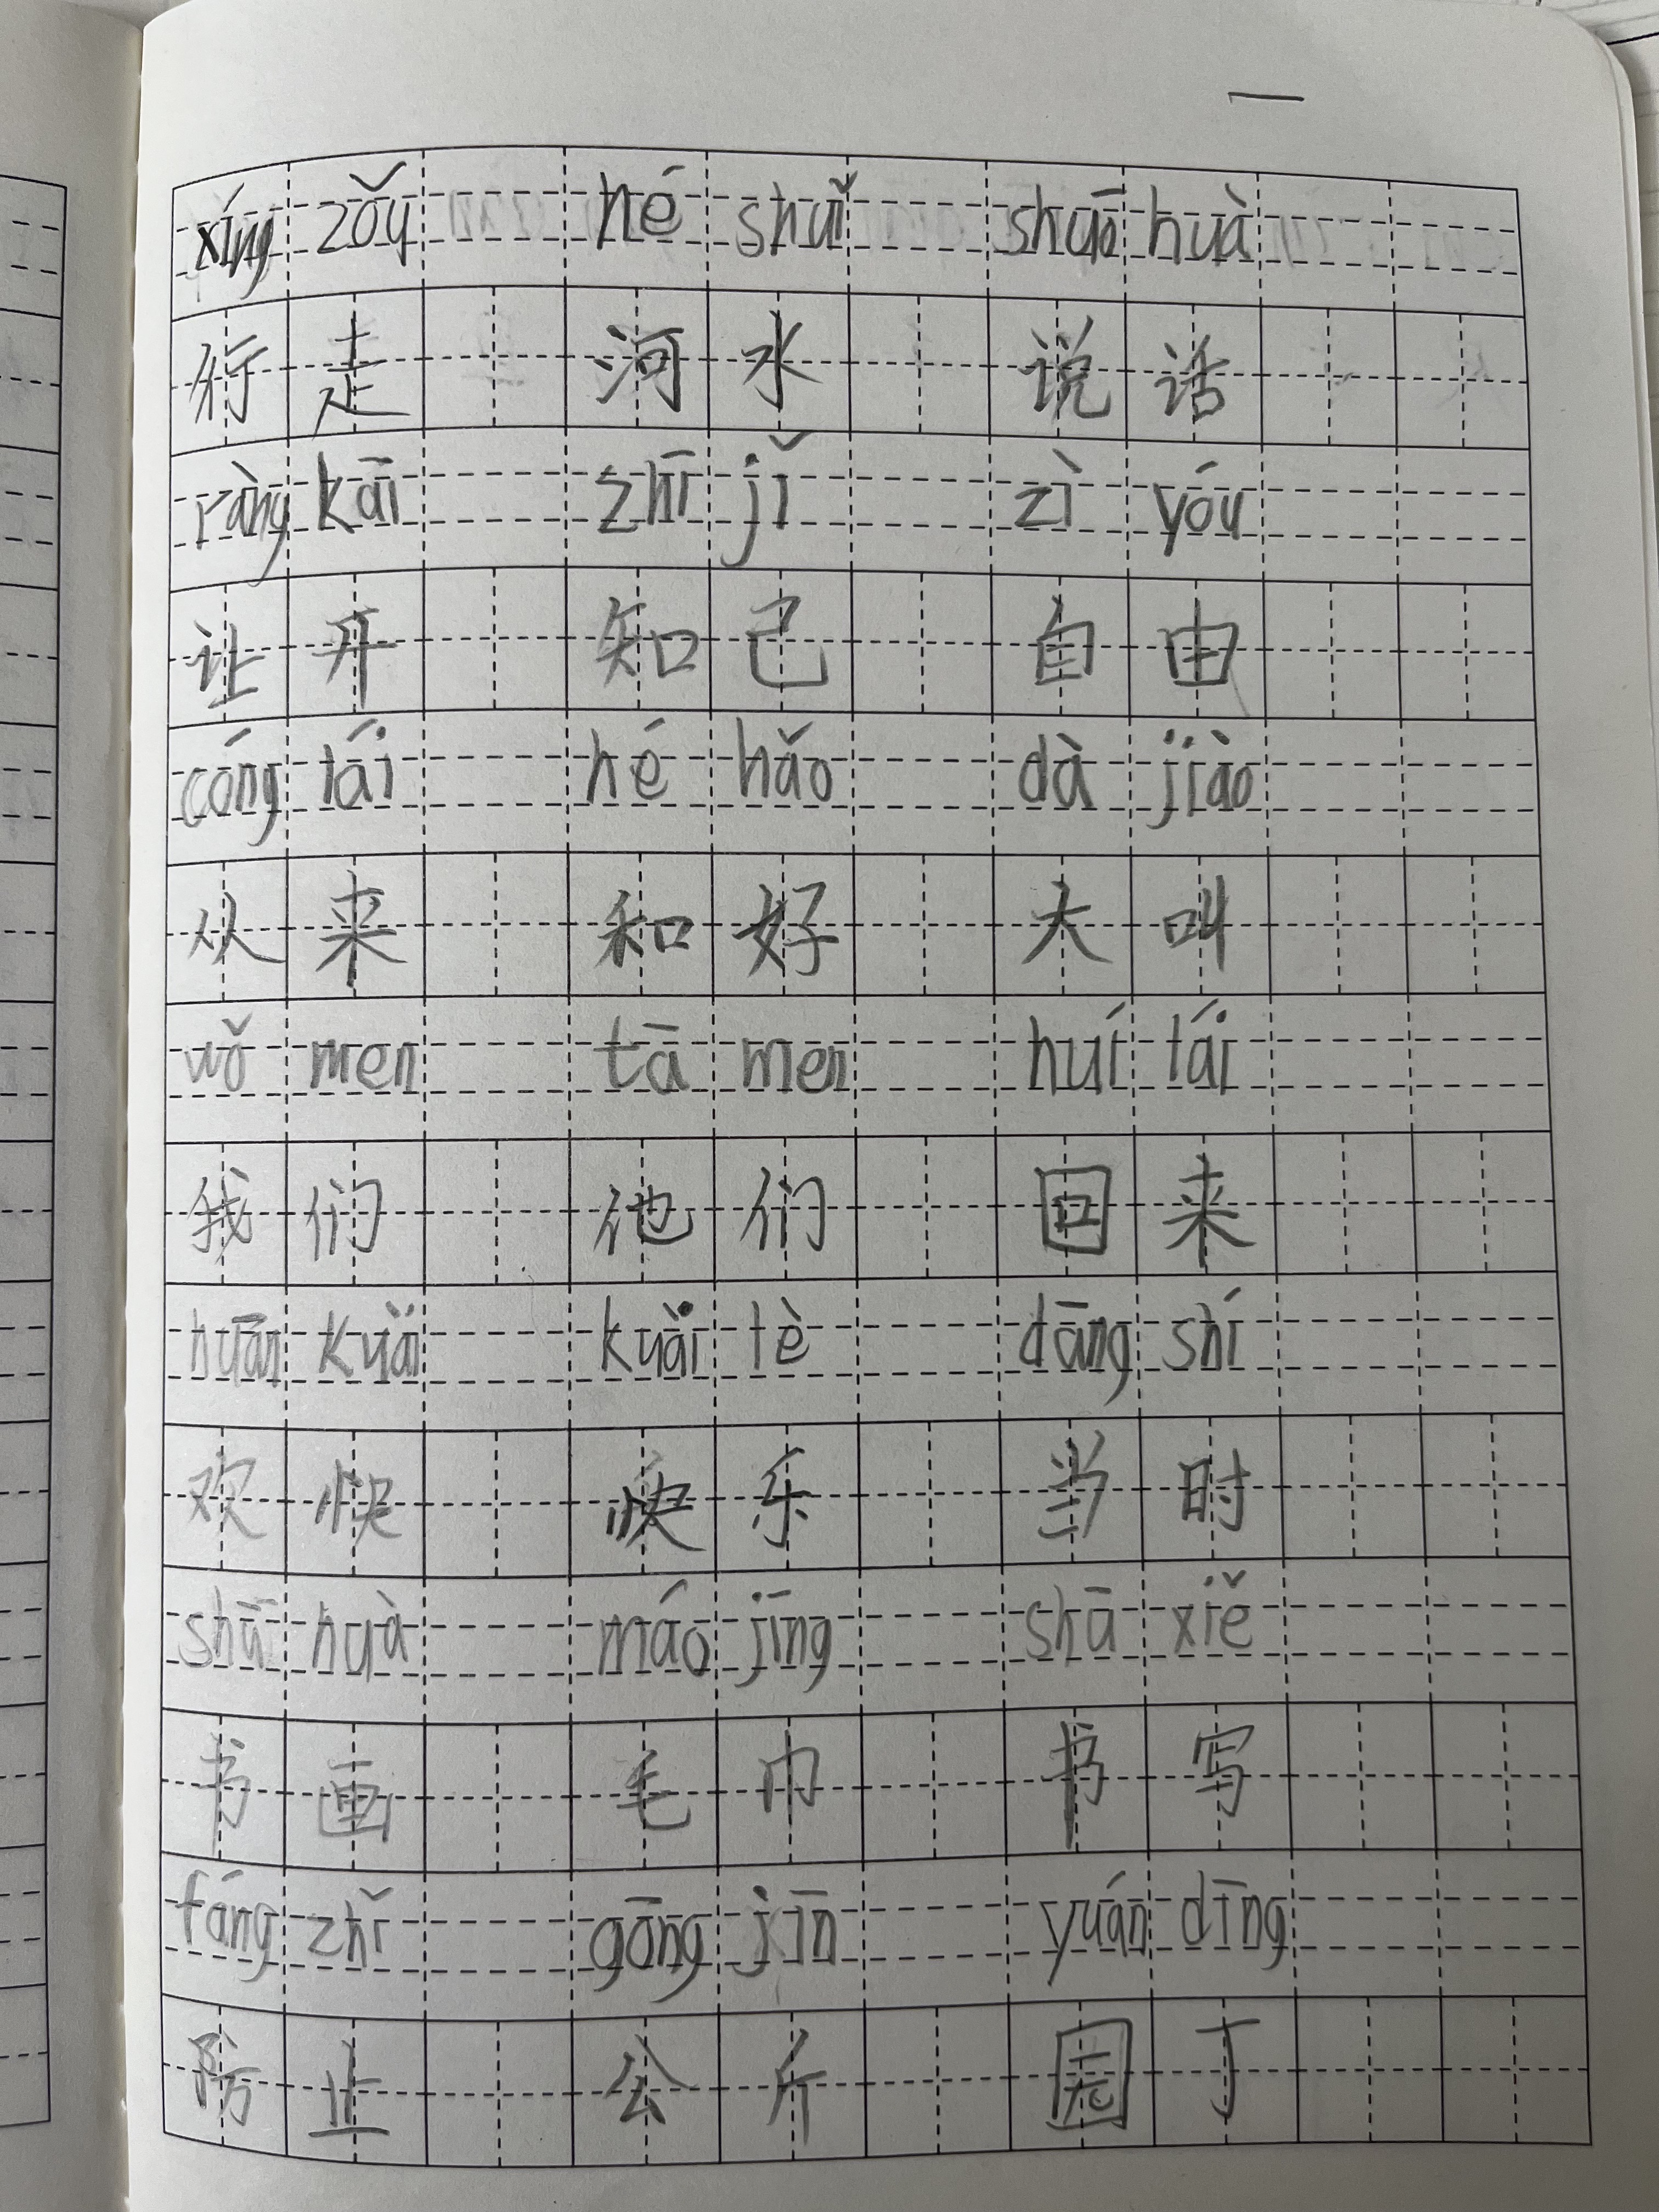 一
xíng zǒu hé shuǐ shuō huà
行走 河水 说话
ràng kāi zhī jǐ zì yóu
让开 知己 自由
cóng lái hé hǎo dà jiào
从来 和好 大叫
wǒ men tā men huí lái
我们 他们 回来
huān kuài kuài lè dāng shí
欢快 快乐 当时
shū huà máo jīng shū xiě
书画 毛巾 书写
fáng zhǐ gōng jīn yuán dīng
防止 公斤 园丁